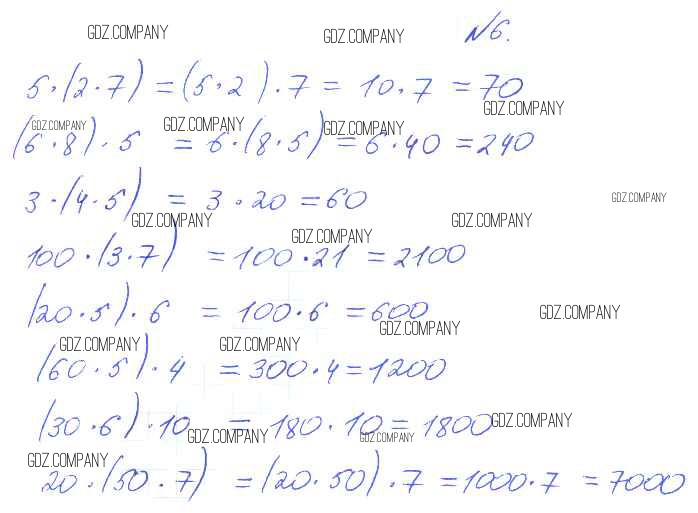 GDZ.COMPANY GDZ.COMPANY №6.
5·(2·7) = (5·2)·7 = 10·7 = 70
GDZ.COMPANY
GDZ.COMPANY GDZ.COMPANY GDZ.COMPANY
(6·8)·5 = 6·(8·5) = 6·40 = 240
3·(4·5) = 3·20 = 60
GDZ.COMPANY
GDZ.COMPANY GDZ.COMPANY
GDZ.COMPANY
100·(3·7) = 100·21 = 2100
(20·5)·6 = 100·6 = 600
GDZ.COMPANY
GDZ.COMPANY
GDZ.COMPANY GDZ.COMPANY
(60·5)·4 = 300·4 = 1200
(30·6)·10 = 180·10 = 1800
GDZ.COMPANY
GDZ.COMPANY GDZ.COMPANY
GDZ.COMPANY
20·(50·7) = (20·50)·7 = 1000·7 = 7000